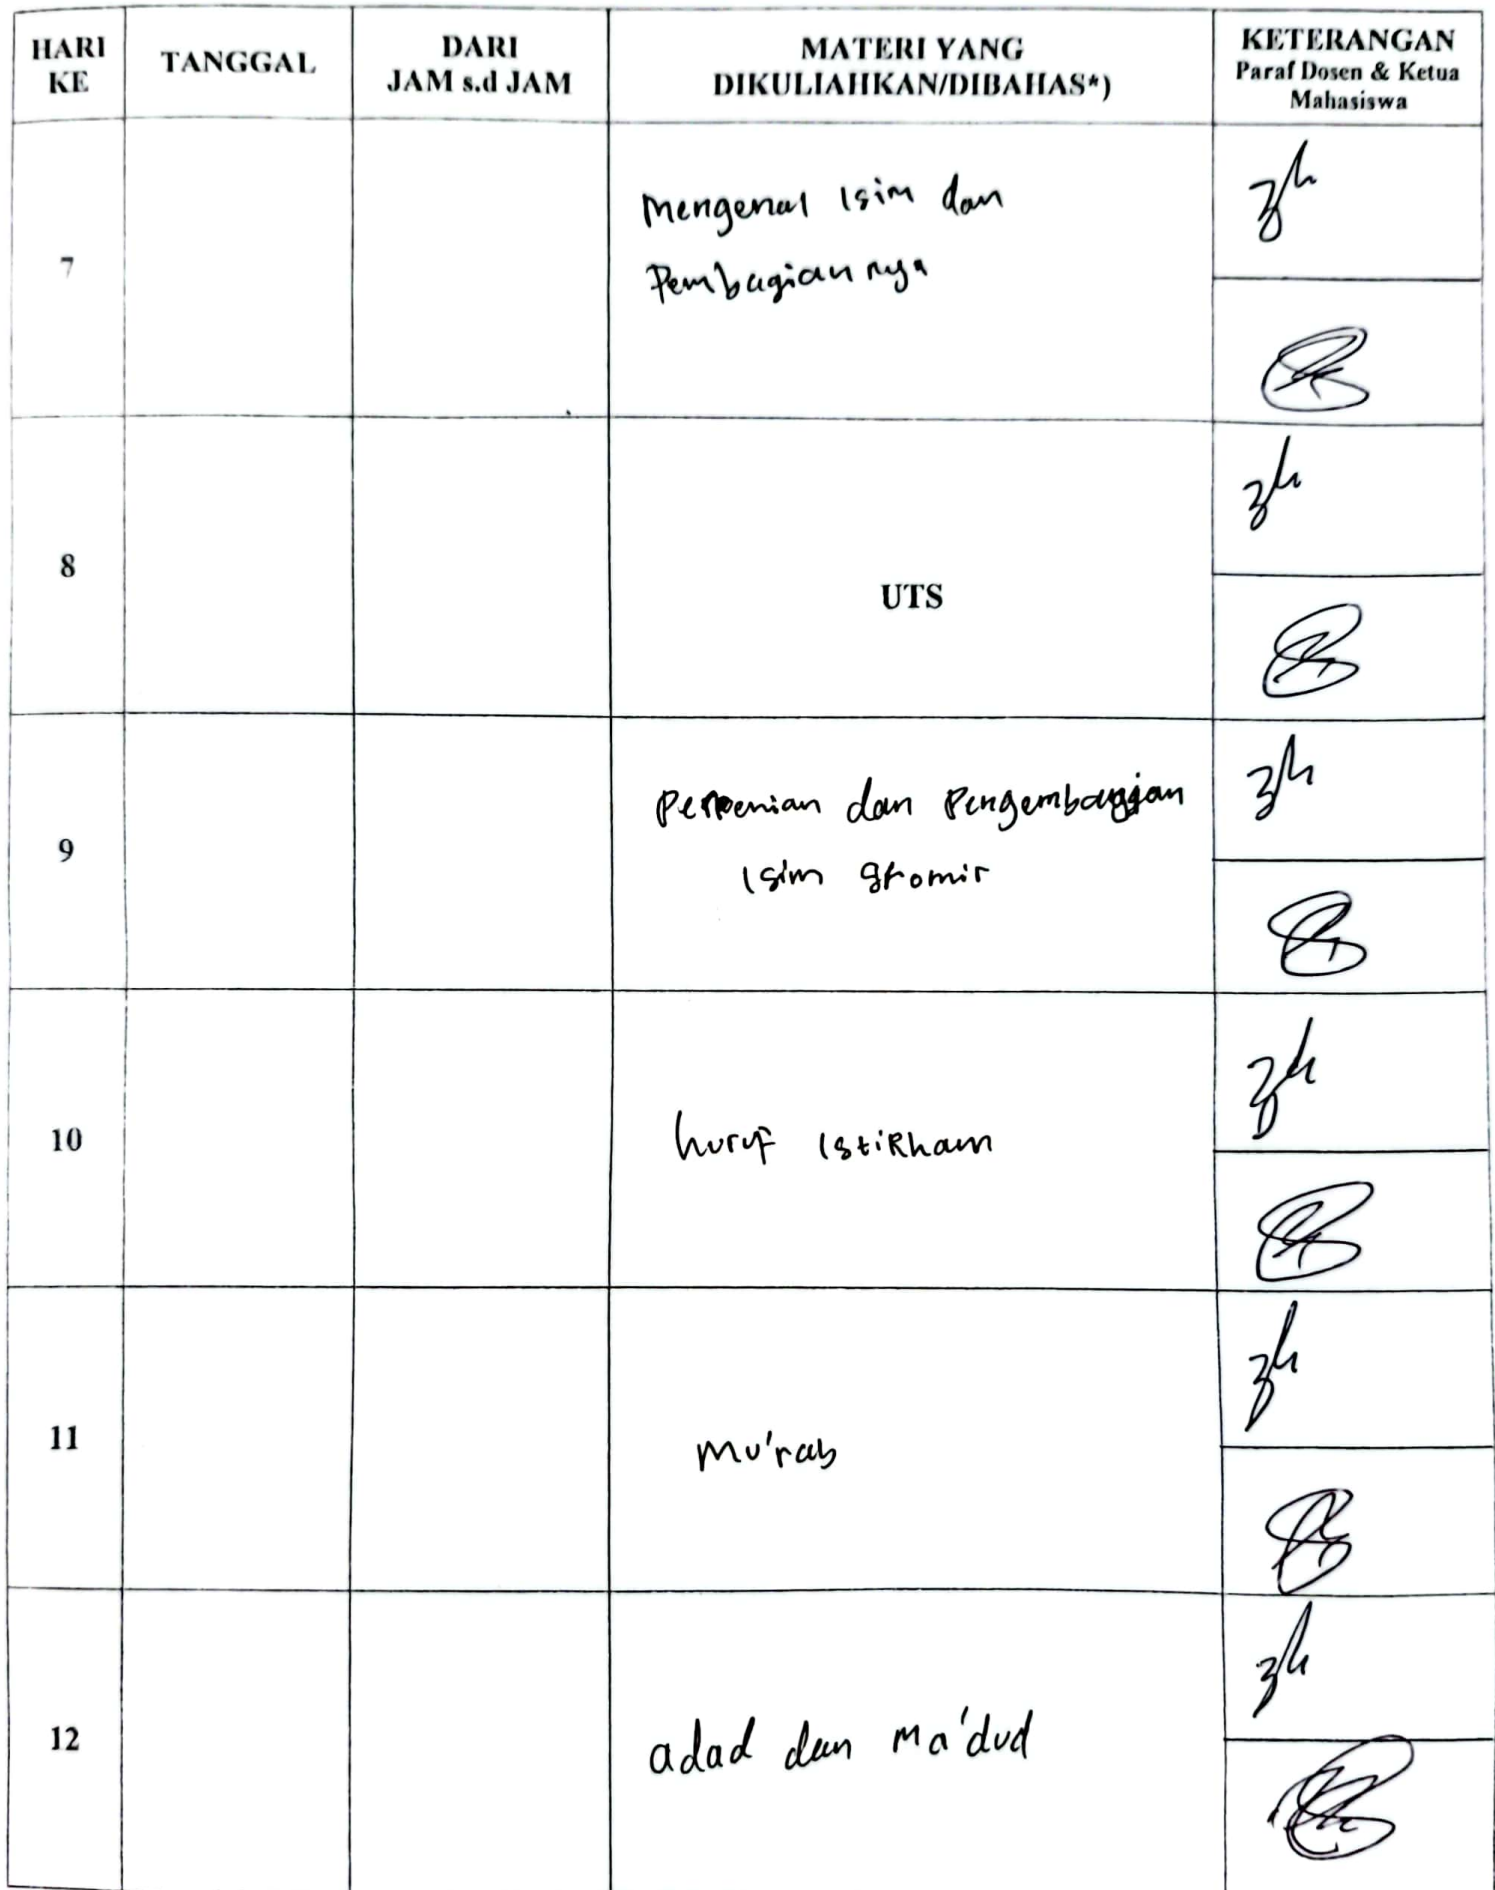 HARI KE
TANGGAL
DARI
JAM s.d JAM
MATERI YANG
DIKULIAHKAN/DIBAHAS*)
KETERANGAN
Paraf Dosen & Ketua
Mahasiswa
7
Mengenal Isim dan
Pembagiannya
8
UTS
9
dan
Isim
10
huruf IstiKham
11
Mu'rab
12
adad dan Ma'dud